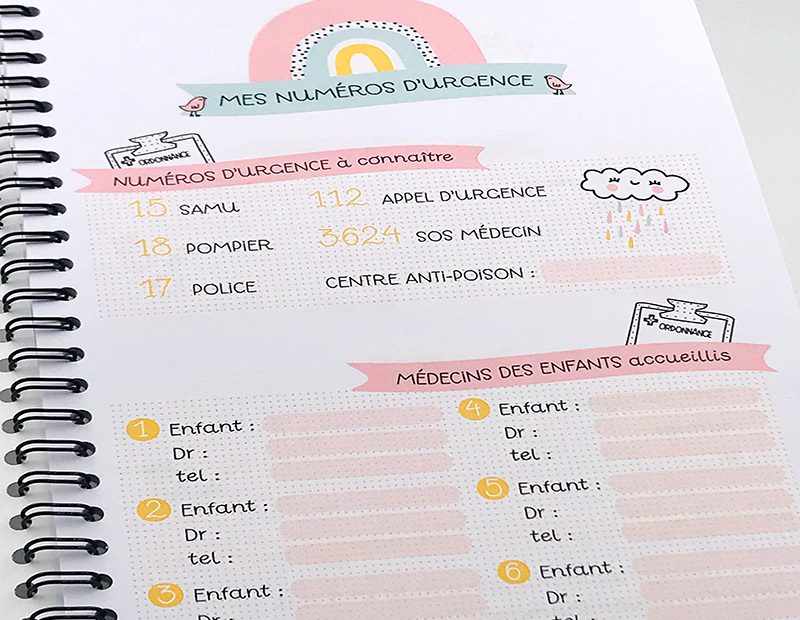 MES NUMÉROS D'URGENCE
ORDONNANCE
NUMÉROS D'URGENCE à connaître
15 SAMU
112 APPEL D'URGENCE
18 POMPIER
3624 SOS MÉDECIN
17 POLICE
CENTRE ANTI-POISON :
ORDONNANCE
MÉDECINS DES ENFANTS accueillis
1 Enfant :
Dr :
tel :
2 Enfant :
Dr :
tel :
3 Enfant :
Dr :
4 Enfant :
Dr :
tel :
5 Enfant :
Dr :
tel :
6 Enfant :
Dr :
tel :